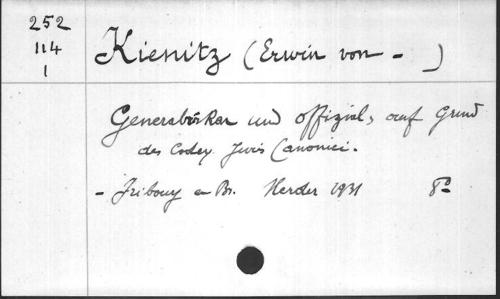 252
114
1
Kienitz (Erwin von - )
Generalvikar und offizial, auf Grund
des Codex Juris Canonici.
- Fribourg en Br. Herder 1931 8º